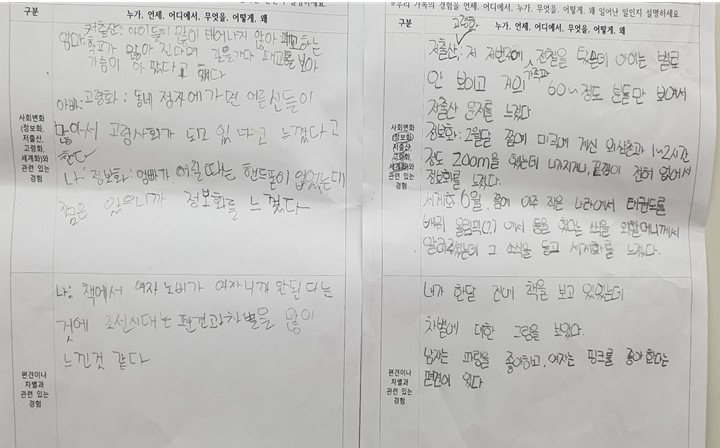 구분
누가, 언제, 어디에서, 무엇을, 어떻게, 왜
엄마: 저출산: 아이들이 많이 태어나지 않아 폐교하는
학교가 많아 진다며 길을가다 폐교를 보아
가슴이 아팠다고 했다
아빠: 고령화: 동네 정자에 가면 어른신들이
많아서 고령사회가 되고 있다고 느꼈다고
한다
나: 정보화: 엄빠가 어릴때는 핸드폰이 없었는데
점은 있으니까 정보화를 느꼈다
사회변화
(정보화,
저출산,
고령화,
세계화)와
관련 있는
경험
나: 책에서 여자 노비가 여자니까 안된 다는
것에 조선시대는 편견과차별을 많이
느낀것 같다
편견이나
차별과
관련 있는
경험
우리 가족의 경험을 언제, 어디에서, 누가, 무엇을, 어떻게, 왜 일어난 일인지 설명하세요.
구분
누가, 언제, 어디에서, 무엇을, 어떻게, 왜
고령화
저출산,: 제 저번주에 전철을 탔는데 아이는 별로
안 보이고 거의 60~정도 분들만 보여서
저출산 문제를 느꼈다
정보화: 2월달 쯤에 미국에 계신 외삼촌과 1~2시간
정도 Zoom을 했는데 나지지거나, 끝낌이 전혀 없어서
정보화를 느꼈다.
세계화 6월 쯤에 아주 작은 나라에서 태권도를
배워 올림픽(?)에서 동을 땄다는 소식을 외할머니께서
알려주셨는데 그 소식을 듣고 세계화를 느꼈다.
사회변화
(정보화,
저출산,
고령화,
세계화)와
관련 있는
경험
내가 한달 전에 책을 보고 있었는데
차별에 대한 그림을 보았다.
남자는 파랑을 좋아하고, 여자는 핑크를 좋아 한다는
편견이 있다
편견이나
차별과
관련 있는
경험